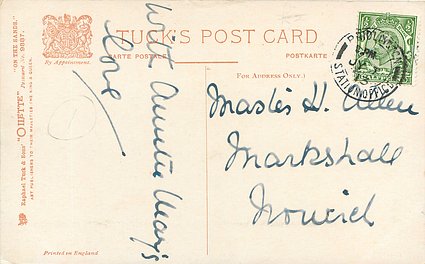 TUCK'S POST CARD
CARTE POSTALE
POSTKARTE
By Appointment.
(FOR ADDRESS ONLY.)
"ON THE SANDS."
Postcard No. 9887.
Raphael Tuck & Sons' "OILETTE"
ART PUBLISHERS TO THEIR MAJESTIES THE KING & QUEEN.
Printed in England
With Auntie May's
love
Master H. Allen
Markshall
Norwich
PADDINGTON
STATION OFFICE
13